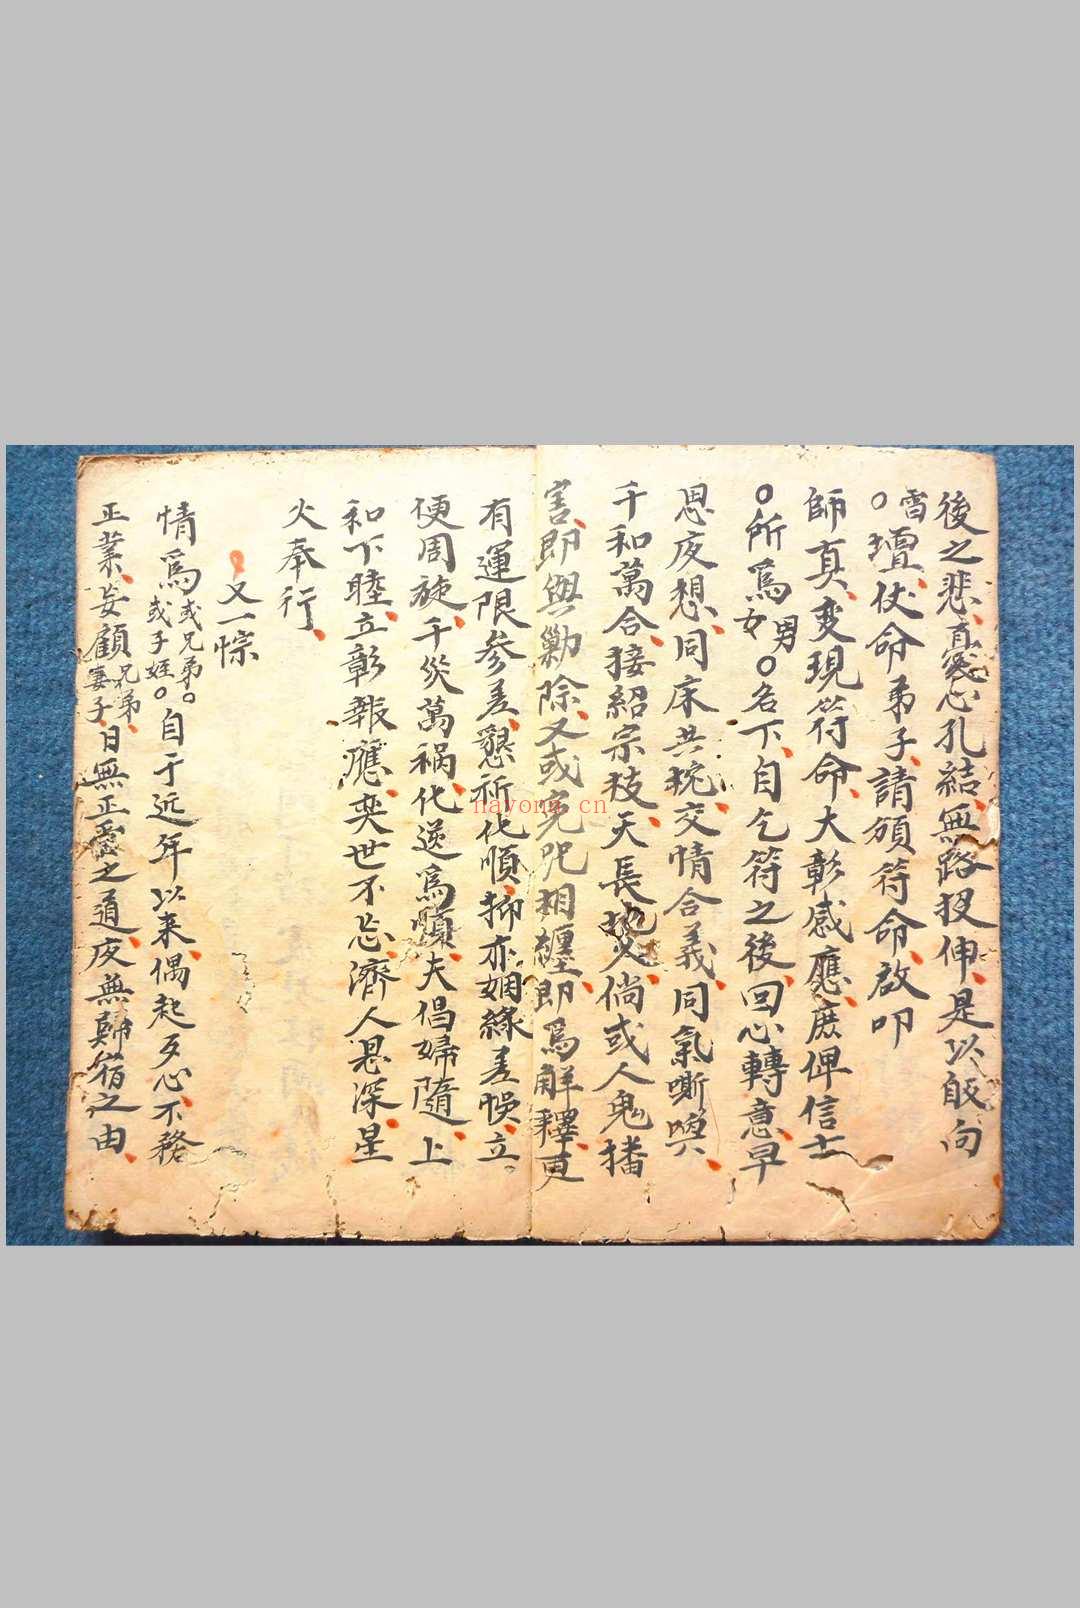 後之悲、真憂心孔結、無路投伸、是以皈向
雪○壇、仗命弟子、請頒符命、啟叩
師真、变現符命、大彰感應、庶俾信士
○所爲男女○名下、自乞符之後、回心轉意、早
思夜想、同床共枕、交情合義、同氣嘶喚、
千和萬合、接紹宗枝、天長地久、倘或人鬼播
害、即與勦除、又或兇咒相纏、即爲解釋、更
有運限參差、懇祈化順、抑亦姻緣差悞、立。
便周旋、千災萬禍、化逆爲順、夫倡婦隨、上
和下睦、立彰報應、奕世不忘、濟人恩深、星
火奉行、
又一悰
情爲或兄弟。或子姪。○自于近年以来、偶起歹心、不務
正業、妄顧兄弟妻子、日無正之道、夜無歸宿之由、
nayong.cn